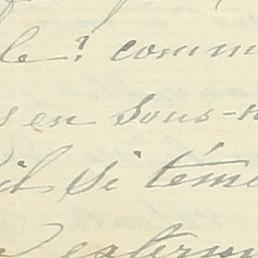 le? comm
s en sous-
il si tém
exterm